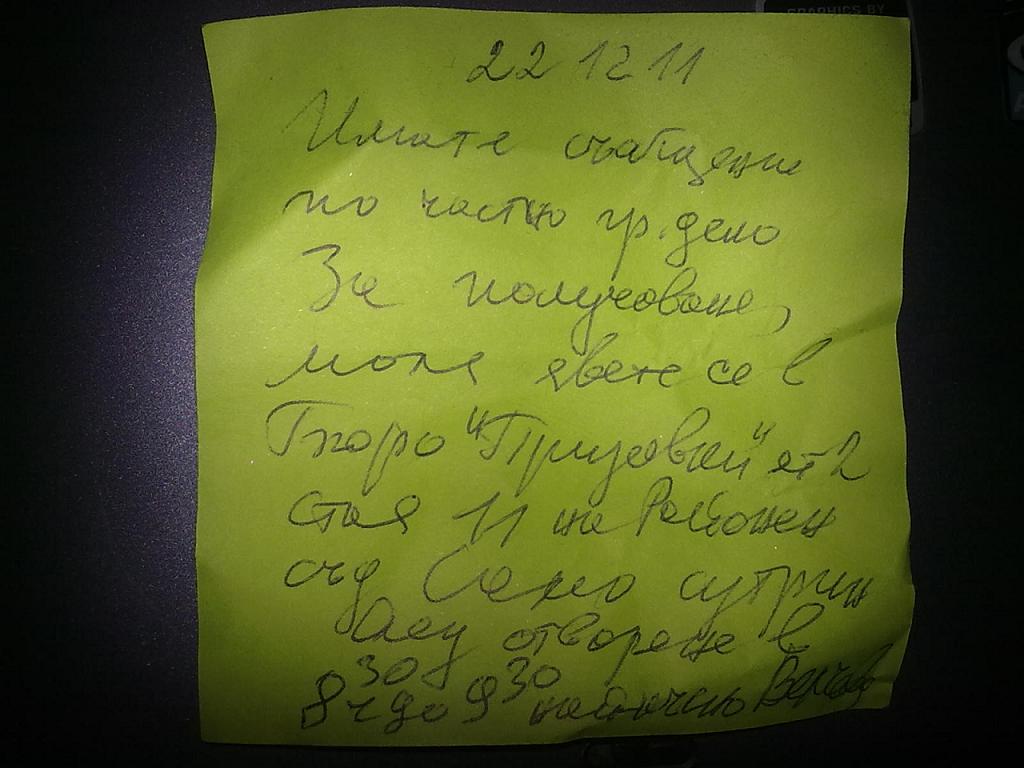 GRAPHICS BY
22 12 11
Имате съобщение
по частно гр. дело
За получаване,
моля явете се в
Бюро "Призовки" ет 2
стая 11 на Районен
съд Само сутрин
отворено в
8 30 ч до 9 30